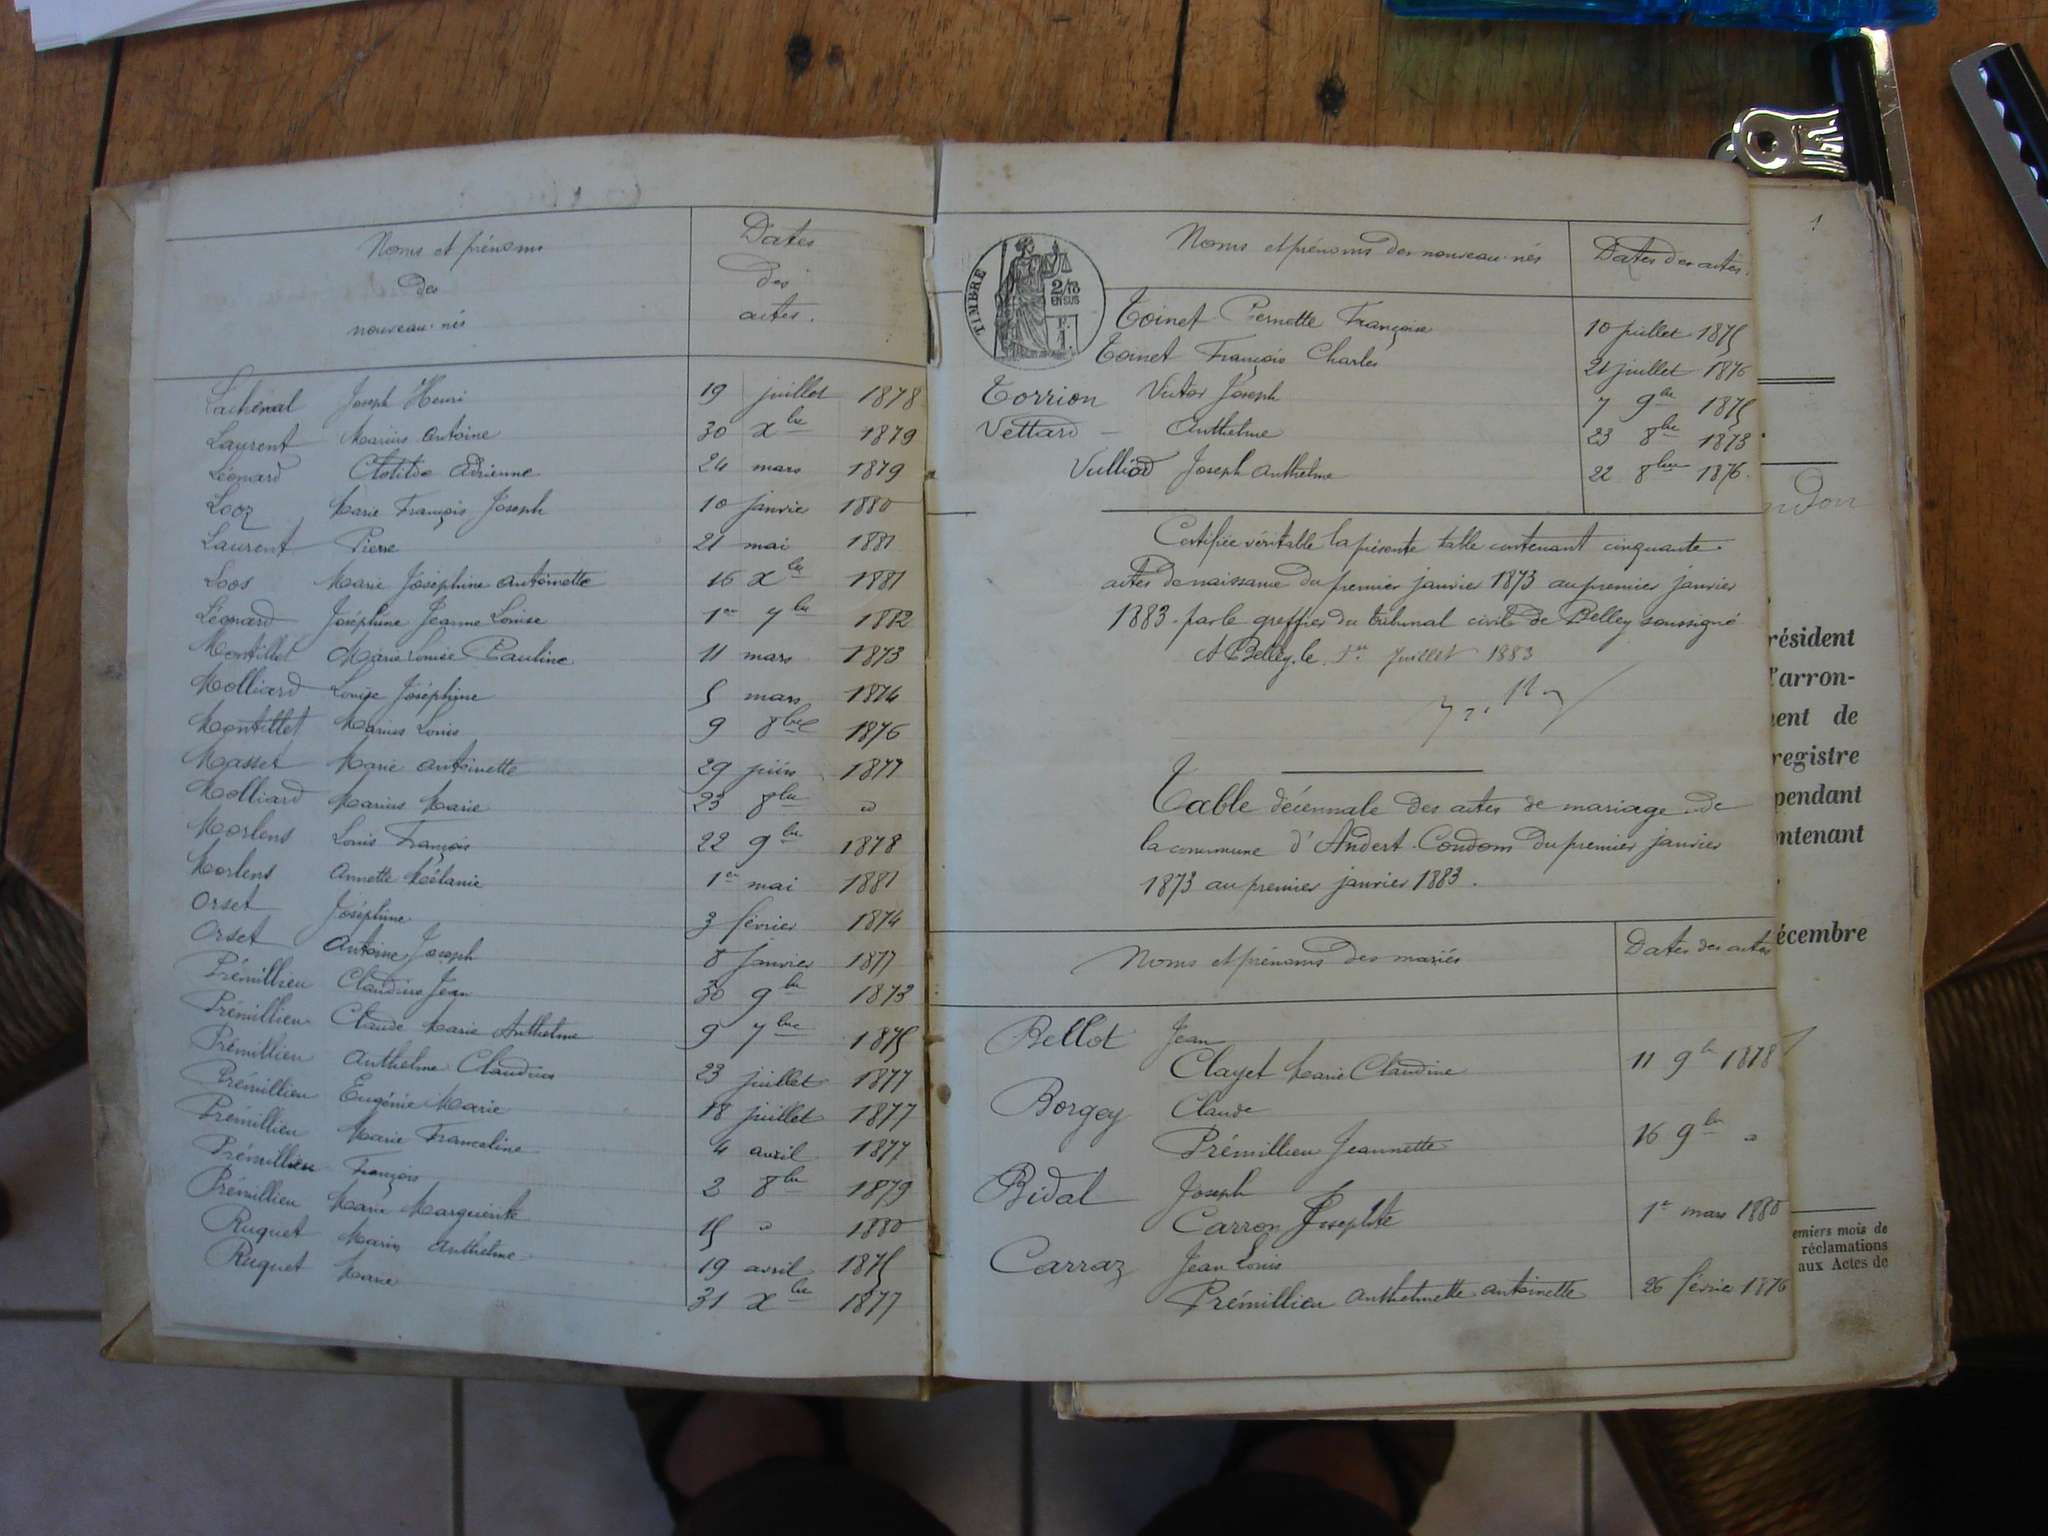 Noms et prénoms
des
nouveau-nés
Dates
des
actes.
Lachenal Joseph Henri 19 juillet 1878
Laurent Marius Antoine 30 Xbre 1879
Léonard Clotilde Adrienne 24 mars 1879
Looz Marie François Joseph 10 janvier 1880
Laurent Pierre 21 mai 1881
Loos Marie Joséphine Antoinette 16 Xbre 1881
Léonard Joséphine Jeanne Louise 1er 7bre 1882
Montillet Marie Louise Pauline 11 mars 1873
Molliard Louise Joséphine 5 mars 1874
Montillet Marius Louis 9 8bre 1876
Masset Marie Antoinette 29 juin 1877
Molliard Marius Marie 23 8bre d
Morlens Louis François 22 9bre 1878
Morlens Annette Mélanie 1er mai 1881
Orset Joséphine 3 février 1874
Orset Antoine Joseph 8 janvier 1877
Prémillieu Claudius Jean 30 9bre 1873
Prémillieu Claude Marie Anthelme 9 7bre 1875
Prémillieu Anthelme Claudius 23 juillet 1877
Prémillieu Eugénie Marie 18 juillet 1877
Prémillieu Marie Franceline 4 avril 1877
Prémillieu François 2 8bre 1879
Prémillieu Marie Marguerite 15 d 1880
Ruquet Marin Anthelme 19 avril 1875
Ruquet Marie 31 Xbre 1877
TIMBRE
2/10
EN SUS
P.
1.
Noms et prénoms des nouveau-nés Dates des actes.
Toinet Pernette Françoise 10 juillet 1875
Toinet François Charles 21 juillet 1876
Torrion Victor Joseph 7 9bre 1875
Vettard - Anthelme 23 8bre 1873
Vulliod Joseph Anthelme 22 8bre 1876.
Certifiée véritable la présente table contenant cinquante
actes de naissance du premier janvier 1873 au premier janvier
1883. par le greffier du tribunal civil de Belley soussigné
A Belley, le 1er Juillet 1883
Table décennale des actes de mariage de
la commune d'Andert-Condom du premier janvier
1873 au premier janvier 1883.
Noms et prénoms des mariés Dates des actes
Bellot Jean
Clayet Marie Claudine 11 9bre 1878
Borgey Claude
Prémillieu Jeannette 16 9bre d
Bidal Joseph
Carron Josephte 1er mars 1880
Carraz Jean Louis
Prémillieu Anthelmette Antoinette 26 février 1876
1
ndon
résident
l'arron-
ent de
registre
pendant
ontenant
écembre
emiers mois de
réclamations
aux Actes de